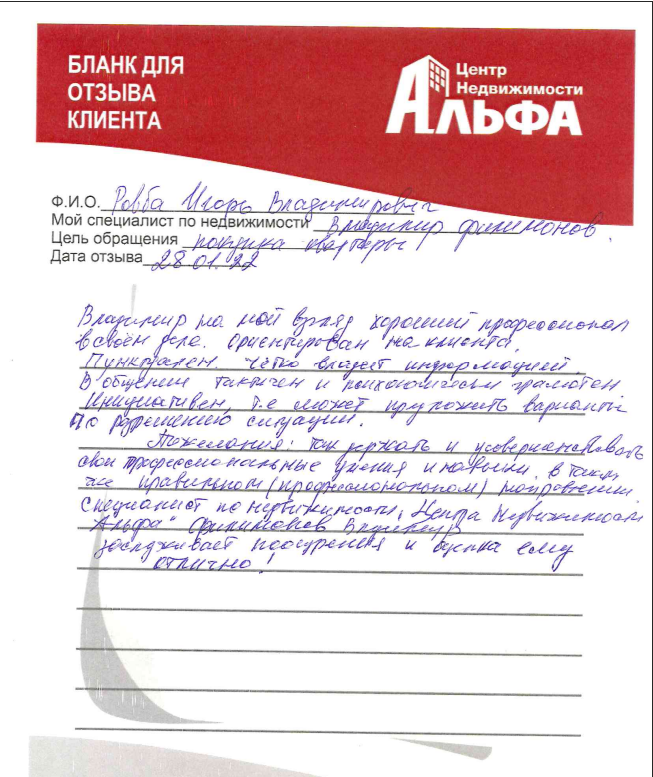 БЛАНК ДЛЯ
ОТЗЫВА
КЛИЕНТА
Центр
Недвижимости
АЛЬФА
Ф.И.О. Ровба Игорь Владимирович
Мой специалист по недвижимости Владимир Филимонов.
Цель обращения покупка квартиры
Дата отзыва 28.01.22
Владимир на мой взгляд хороший профессионал
в своём деле. Ориентирован на клиента.
Пунктуален. Чётко владеет информацией.
В общении тактичен и психологически грамотен
Инициативен, т.е может предложить варианты
по разрешению ситуации.
Пожелания: так держать и усовершенствовать
свои профессиональные умения и навыки. в таком
же правильном (профессиональном) направлении.
Специалист по недвижимости, Центра Недвижимости
Альфа" Филимонов Владимир
заслуживает поощрения и оценка ему
отлично!